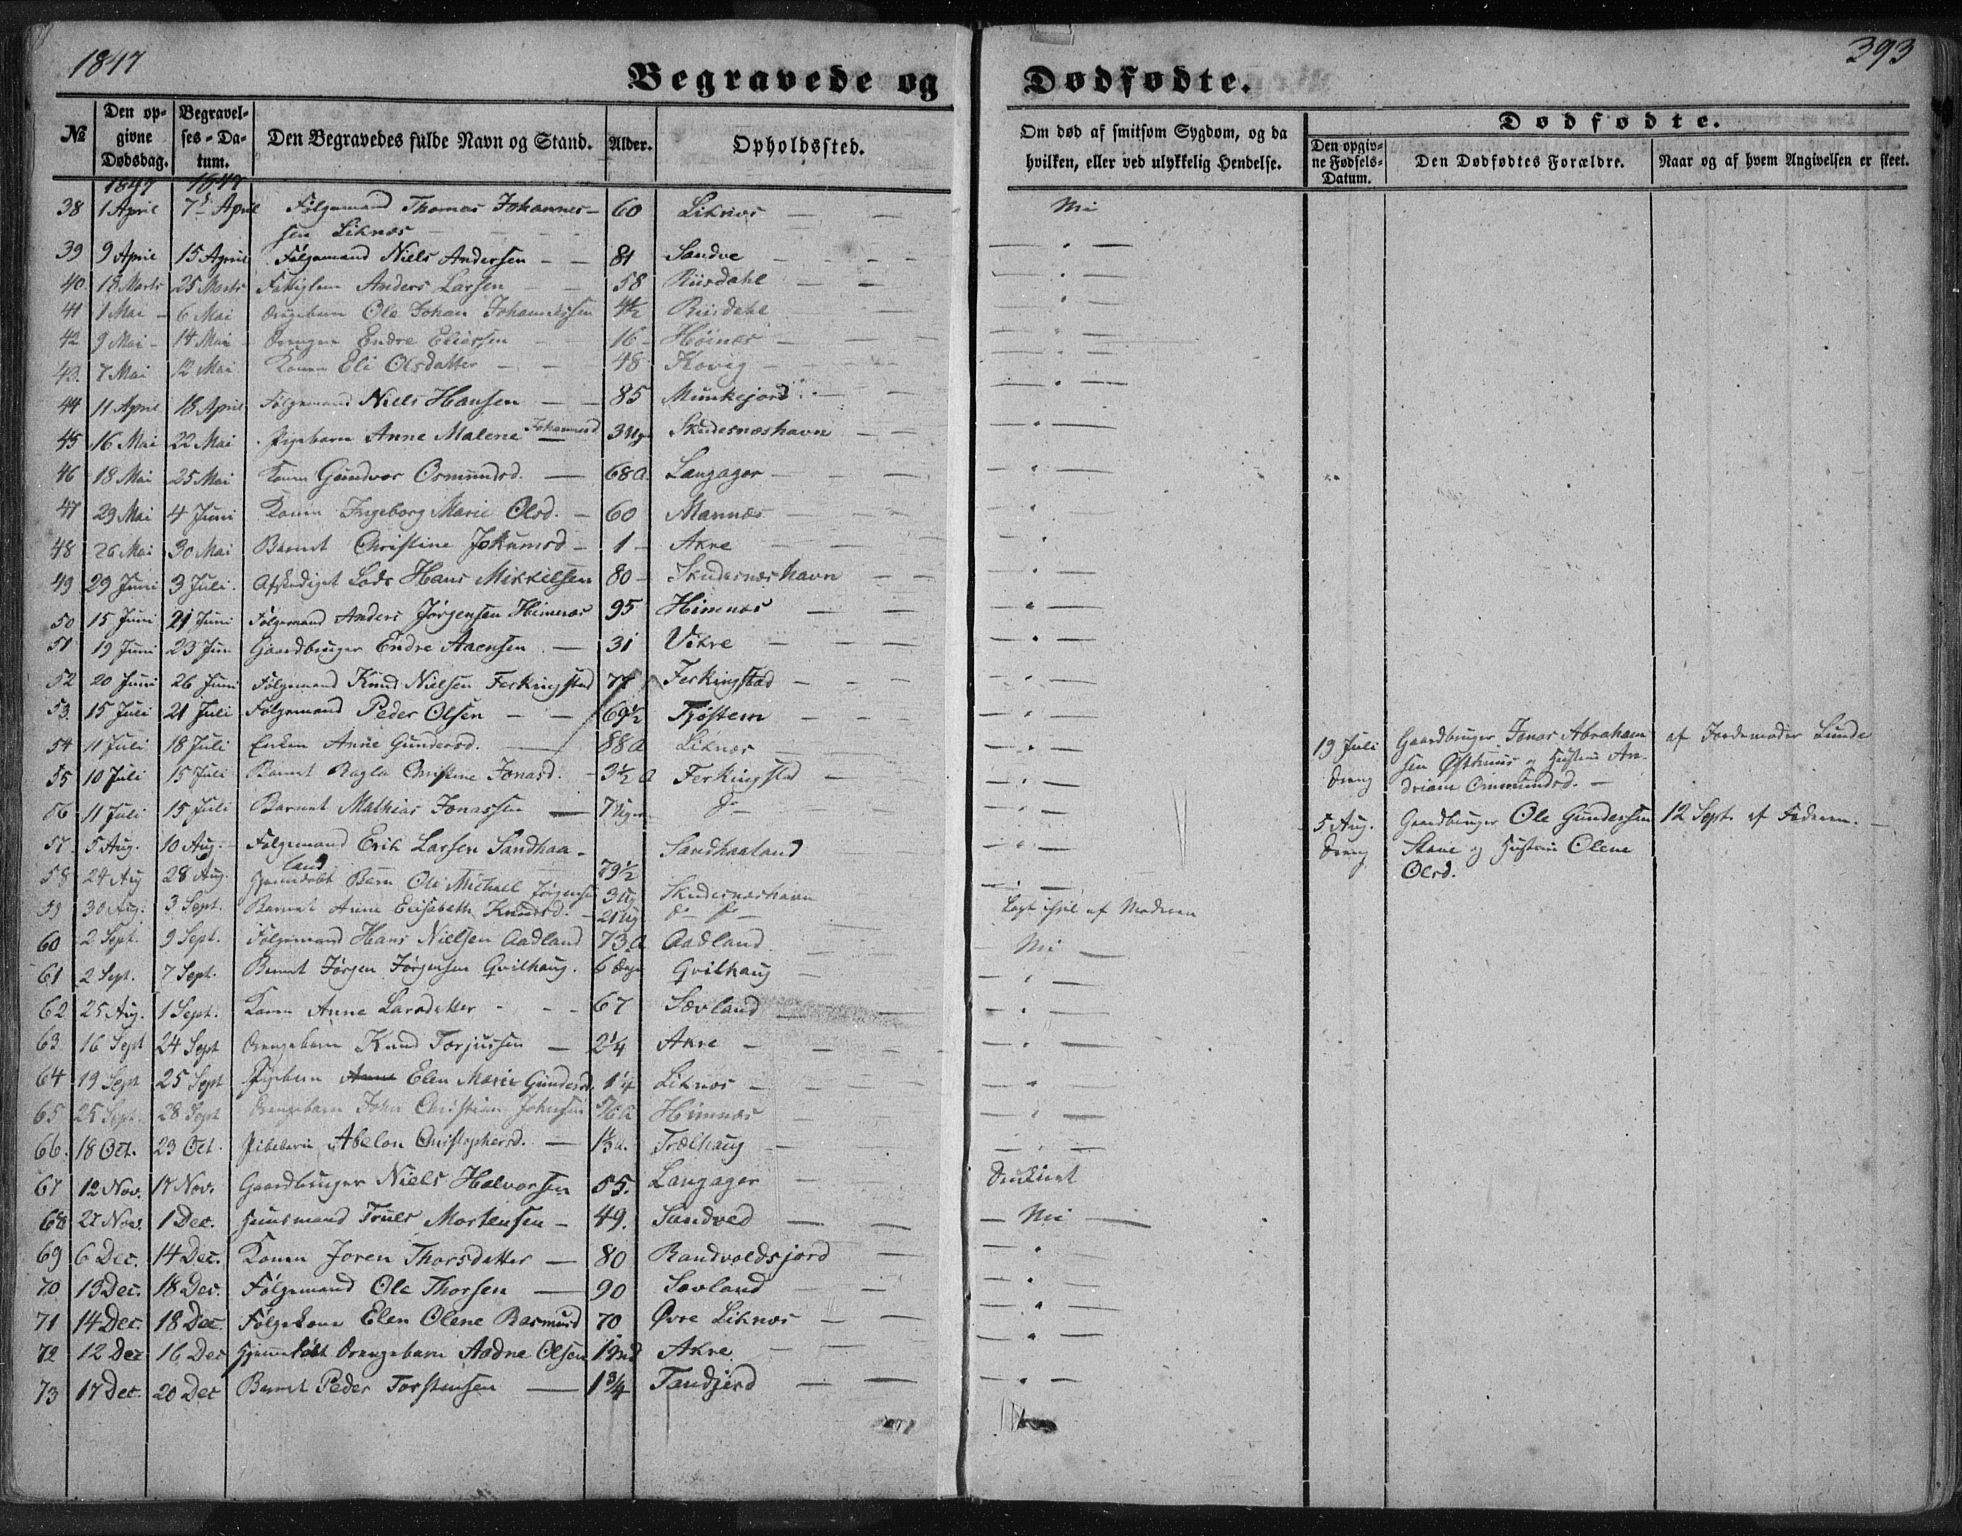 1847
393
Begravede og Dødfødte.
№
Den opgivne Dødsdag.
Begravelses-Datum.
Den Begravedes fulde Navn og Stand.
Alder.
Opholdssted.
Om død af smitsom Sygdom, og da hvilken, eller ved ulykkelig Hendelse.
Dødfødte.
Den opgivne Fødsels-Datum.
Den Dødfødtes Forældre.
Naar og af hvem Angivelsen er skeet.
1847 1847
38 1 April 7 April Følgemand Thomas Johannes- 60 Liknes — Nei
sen Liknes
39 9 April 15 April Følgemand Niels Andersen — 81 Sandve —
40 18 Marts 25 Marts Anders Larsen — 58 Riisdahl —
41 1 Mai 6 Mai Drengebarn Ole Johan Johannessen 4½ Riisdahl
42 9 Mai 14 Mai Drengen Endre Eliassen 16 Høinæs —
43. 7 Mai 12 Mai Konen Eli Olsdatter — 48 Kovig —
44 11 April 18 April Følgemand Niels Hansen — 85 Munkejord —
45 16 Mai 22 Mai Pigebarn Anne Malene Johannesd 3 Ug. Skudesnæshavn —
46 18 Mai 25 Mai Konen Gundvor Osmundsd. — 68 A. Langager —
47 29 Mai 4 Juni Konen Ingeborg Marie Olsd. — 60 Mannæs —
48 26 Mai 30 Mai Barnet Christine Jokumsd — 1 — Akre —
49 29 Juni 3 Juli. Afskediget Lods Hans Mikkelsen 80 — Skudesnæshavn —
50 15 Juni 21 Juni Følgemand Anders Jørgensen Himnæs 95 Himnæs —
51 19 Juni 23 Jun Gaardbruger Endre Aaensen — 31 Vikre —
52 20 Juni 26 Juni Følgemand Knud Nielsen Ferkingstad 77 Ferkingstad —
53. 15 Juli 21 Juli Følgemand Peder Olsen — 69½ Tjøstem —
54 11 Juli 18 Juli Enken Anne Gundersd. 88 A Liknæs —
55 10 Juli 15 Juli Barnet Ragla Christine Jonasd. 3½ A Ferkingstad —
56 11 Juli 15 Juli Barnet Mathias Jonassen — 7 Uger do —
57. 5 Aug. 10 Aug. Følgemand Erik Larsen Sandhaa- Sandhaaland
land 79½
58 24 Aug 28 Aug. Hjemdøbt Barn Ole Michael Jørgensen 3 Ug Skudesnæshavn
59 30 Aug. 3 Sept. Barnet Anne Elisabeth Knudsd. — 21 Ug. do do — Lagt ihjel af Moderen
60 2 Sept. 9 Sept. Følgemand Hans Nielsen Aadland 73 A Aadland Nei —
61 2 Sept. 7 Sept. Barnet Jørgen Jørgensen Qvilhaug. 6 Dage Qvilhaug —
62 25 Aug. 1 Sept. Konen Anne Larsdatter — 67 Sævland —
63. 16 Sept 24 Sept Drengebarn Knud Torjussen — 2¼ Akre —
64 19 Sept 25 Sept Pigebarn Anne Elen Marie Gundersd. 1¼ Liknæs —
65 25 Sept. 28 Sept Drengebarn John Christian Johnsen 5/6 A Himnæs —
66. 18 Oct. 23 Oct. Pigebarn Abelon Christophersd. — 1⅓ A. Trælhaug —
67 12 Nov. 17 Nov. Gaardbruger Niels Halvorsen 55. Langager — Druknet
68 27 Nov. 1 Dec. Huusmand Truls Mortensen — 49. Sandved — Nei —
69 6 Dec. 14 Dec. Konen Joren Thorsdatter — 80 Randvoldsjord —
70 13 Dec. 18 Dec. Følgemand Ole Thorsen — 90 Sevland —
71 14 Dec. 18 Dec. Følgekone Elen Olene Rasmusd 70 Øvre Liknæs —
72 12 Dec 16 Dec Hjemdøbt Drengebarn Aadne Olsen 1 Md Akre —
73 17 Dec. 20 Dec Barnet Peder Torstensen — 1¾ Tandjerd —
19 Juli Gaardbruger Jonas Abraham- af Jordemoder Lunde
Dreng sen Østhuus og Hustru An-
driane Ommundsd. —
5 Aug. Gaardbruger Ole Gundersen 12 Sept. af Faderen. —
Dreng Stave og Hustru Olene
Olsd.